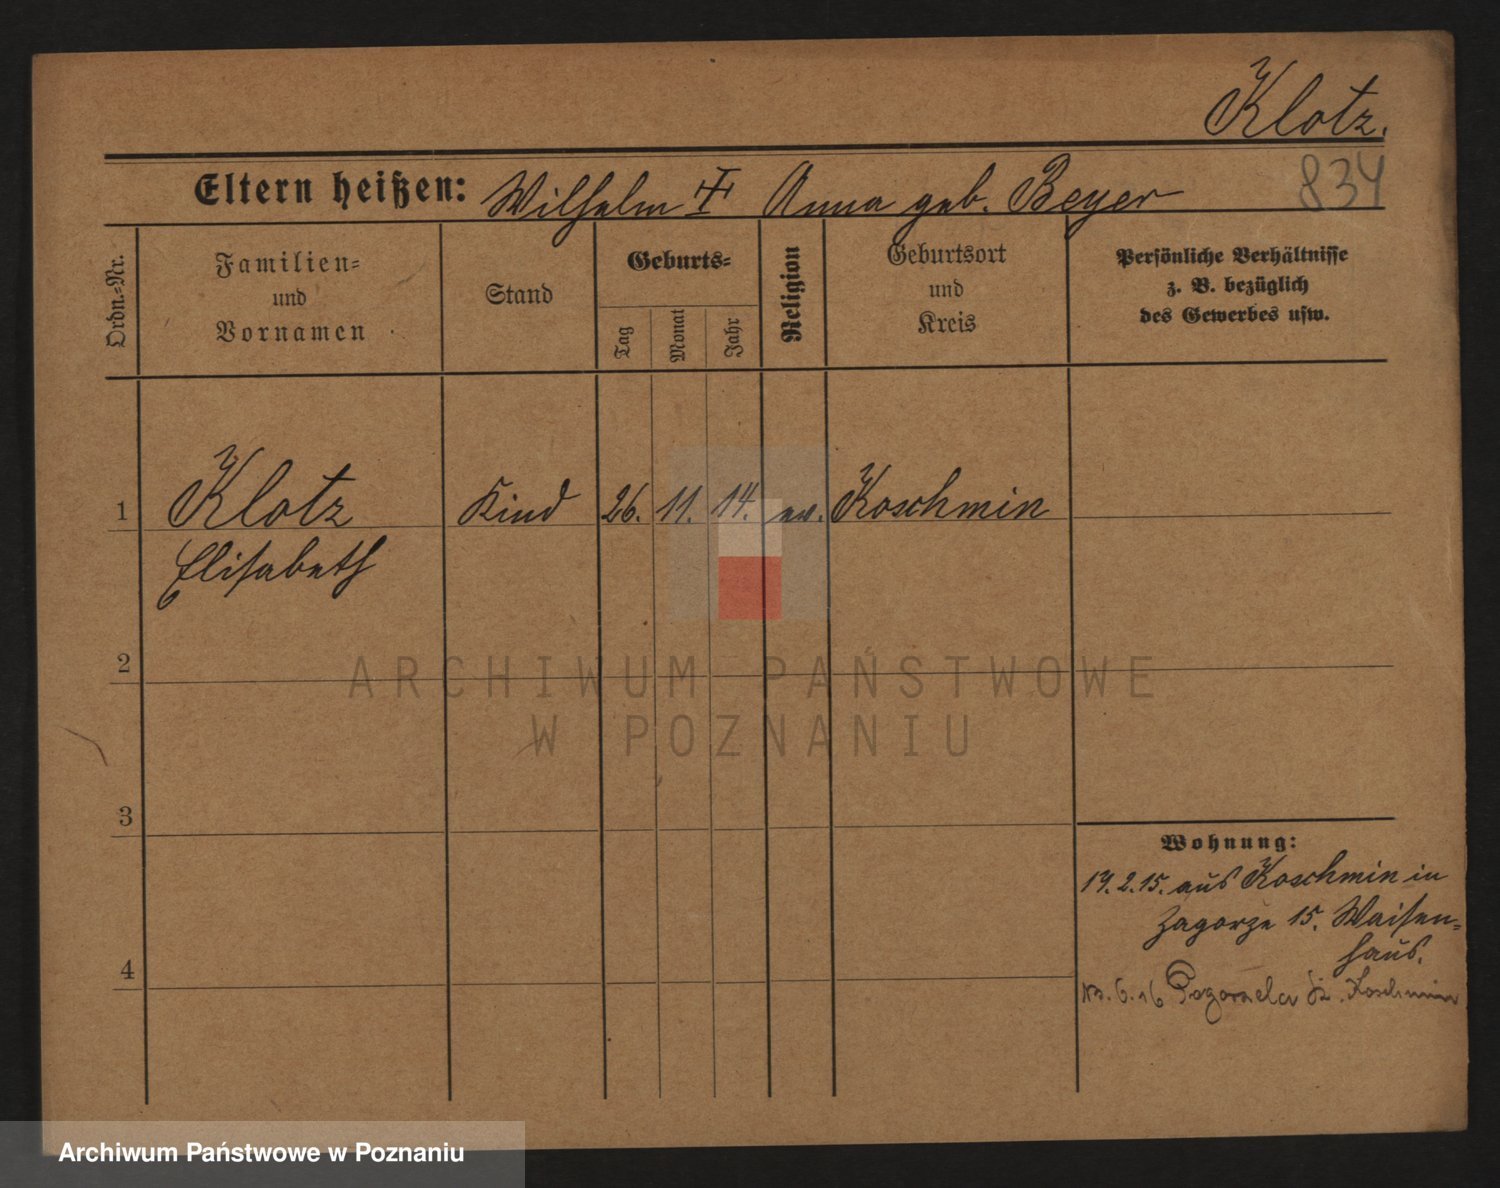 Klotz.
834
Eltern heißen: Wilhelm ☩ Anna geb. Beyer
Ordn.-Nr.
Familien-
und
Vornamen
Stand
Geburts-
Tag
Monat
Jahr
Religion
Geburtsort
und
Kreis
Persönliche Verhältnisse
z. B. bezüglich
des Gewerbes usw.
1 Klotz Kind 26. 11. 14. ev. Koschmin
Elisabeth
2
3
4
Wohnung:
19. 2. 15. aus Koschmin in
Zagorze 15. Waisen-
haus.
6. 16 Pogorzela Koschmin
ARCHIWUM PAŃSTWOWE
W POZNANIU
Archiwum Państwowe w Poznaniu